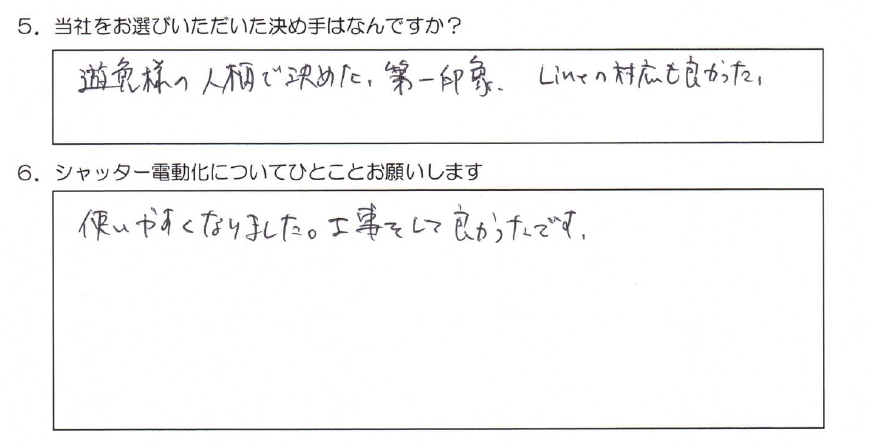 5. 当社をお選びいただいた決め手はなんですか？
遊免様の人柄で決めた, 第一印象. Lineの対応も良かった,
6. シャッター電動化についてひとことお願いします
使いやすくなりました。工事をして良かったです.